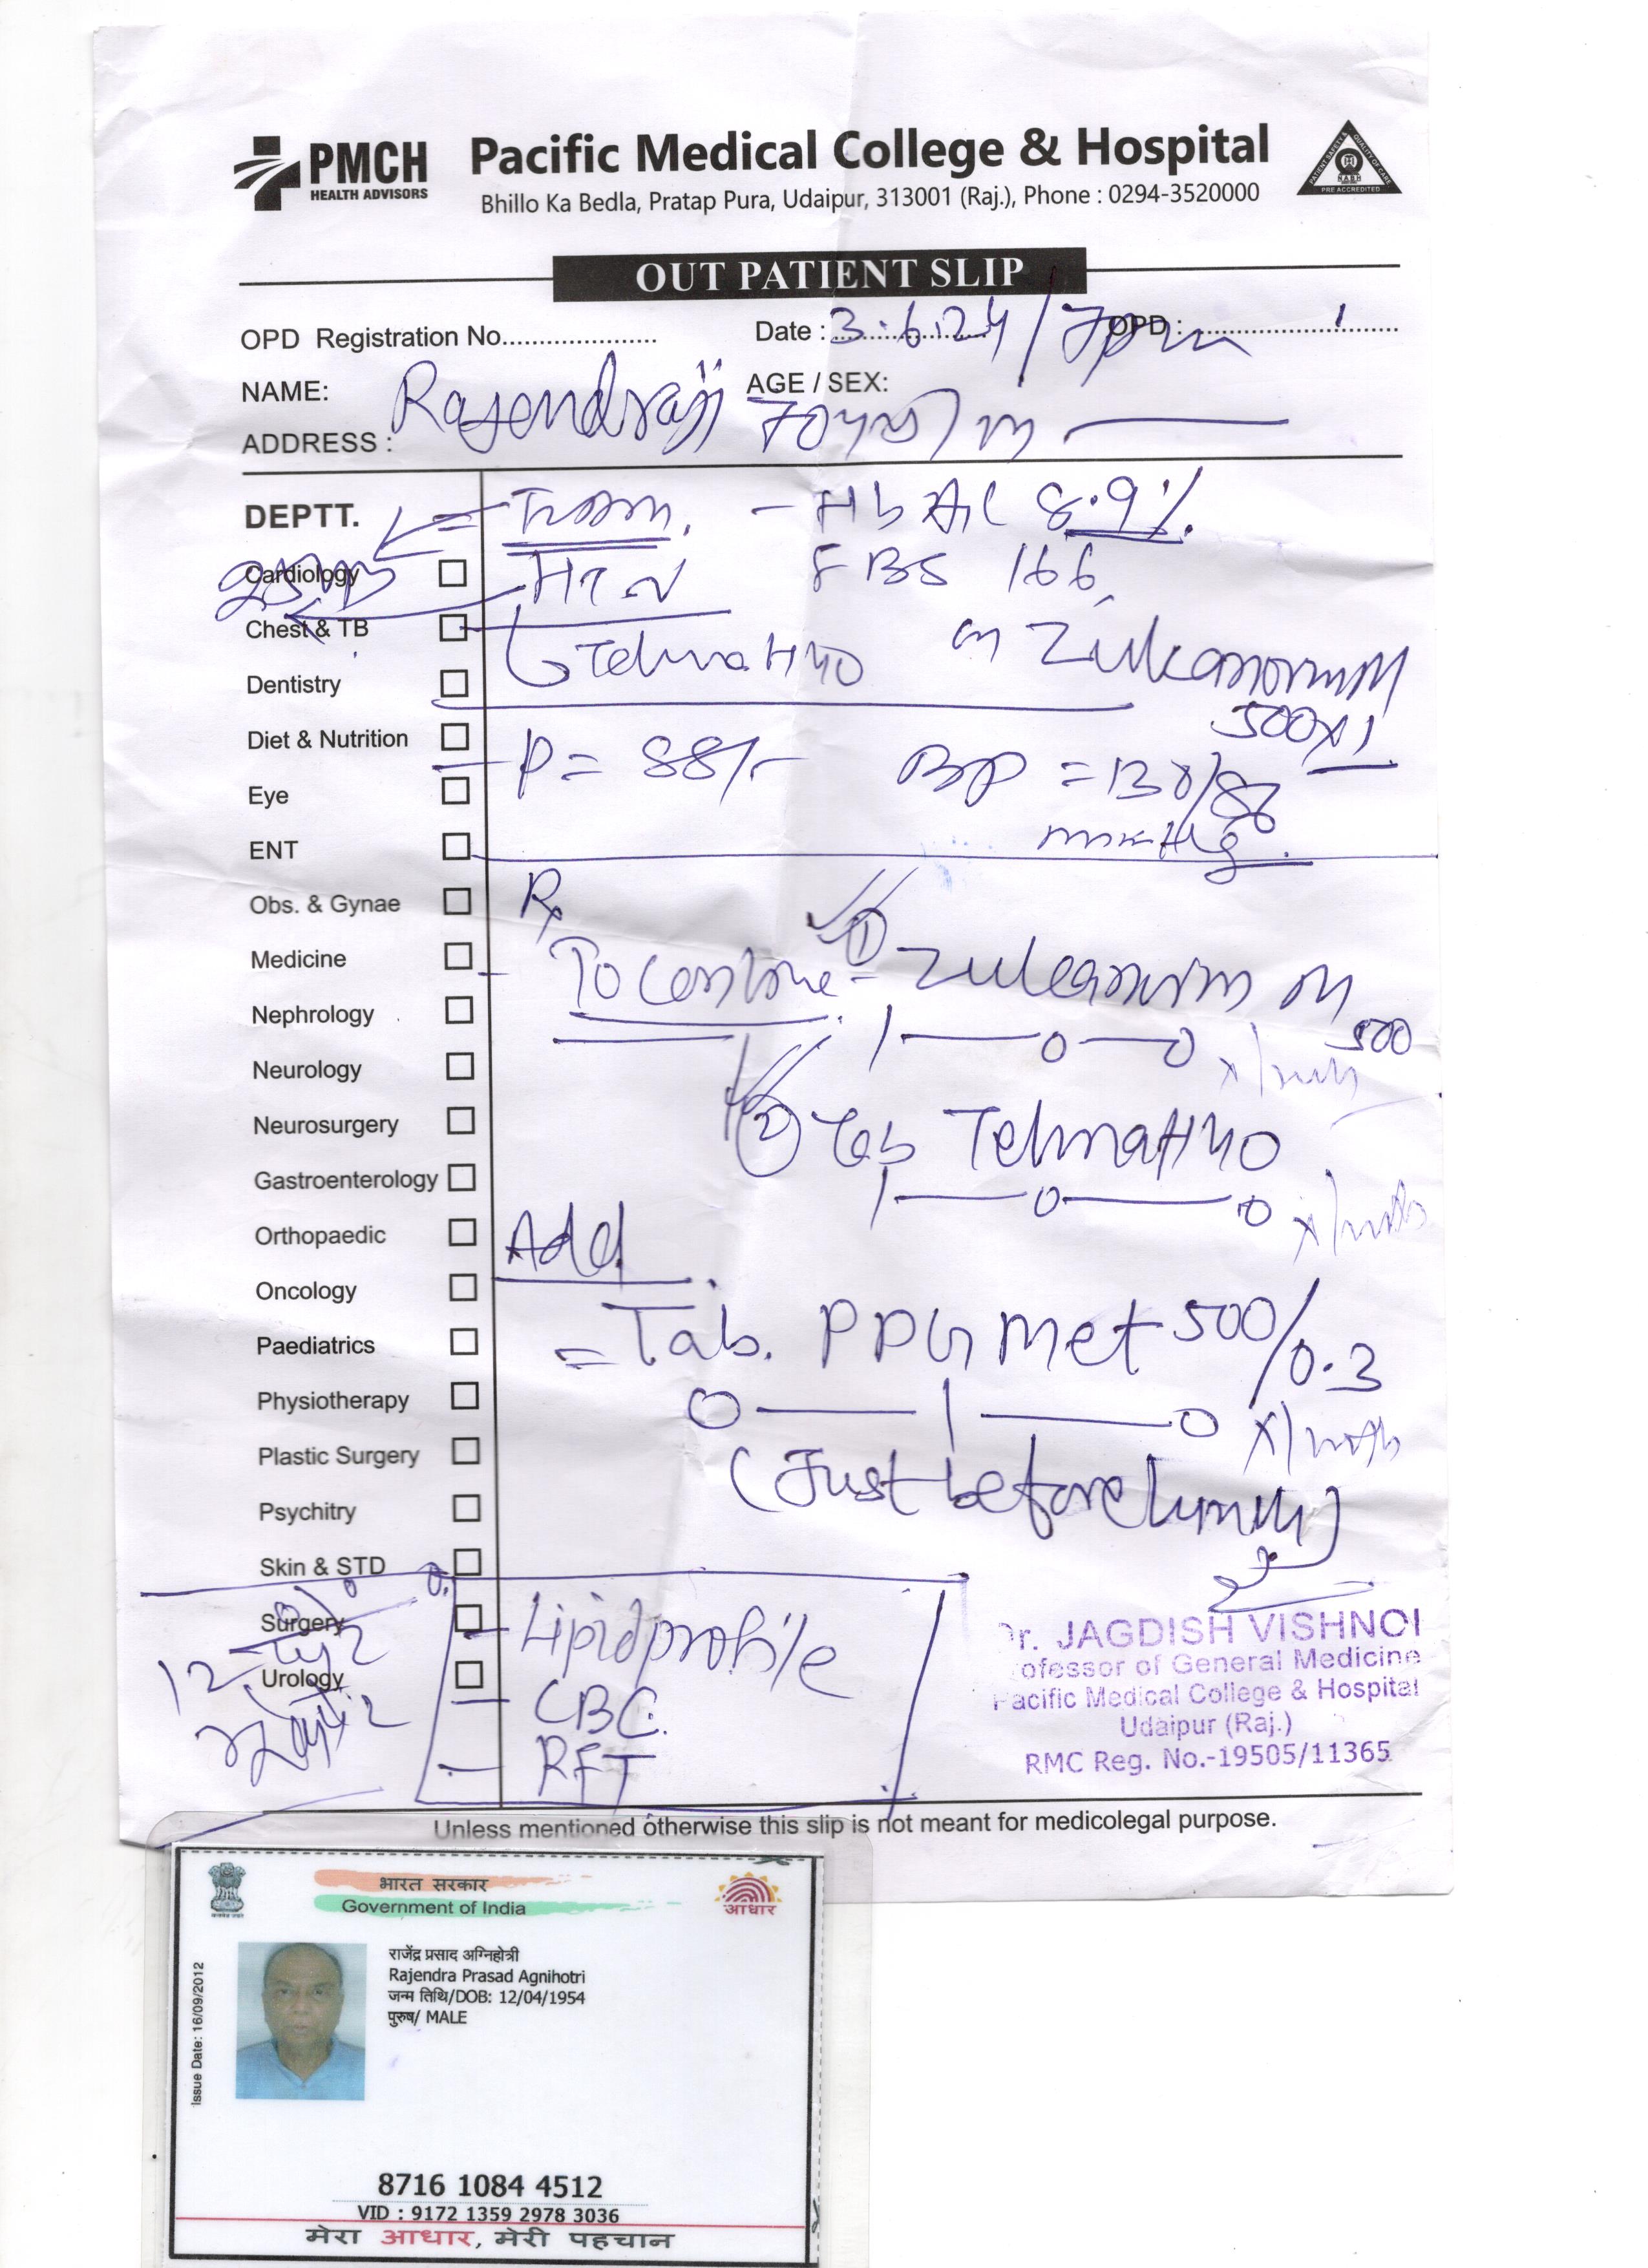 PMCH
HEALTH ADVISORS
Pacific Medical College & Hospital
Bhillo Ka Bedla, Pratap Pura, Udaipur, 313001 (Raj.), Phone : 0294-3520000
PATIENT SAFETY & QUALITY OF CARE
NABH
PRE ACCREDITED
OUT PATIENT SLIP
OPD Registration No.................... Date : 3.6.24 / 7pm OPD :
NAME: Rajendraji AGE / SEX: 70yrs / m
ADDRESS :
DEPTT.
- HbA1C 8.9%.
Cardiology HTN FBS 166
Chest & TB
TelmaH40 on
Dentistry
500x1
Diet & Nutrition
P = 88/- BP = 130/86
Eye
mmHg.
ENT
Obs. & Gynae Rx
Medicine
- To continue = ① M 500
Nephrology
1 — 0 — 0
Neurology
Neurosurgery ② Tab TelmaH40
Gastroenterology
1 — 0 — 0
Orthopaedic Add.
Oncology
= Tab. PPG Met 500/0.3
Paediatrics
Physiotherapy 0 — 1 — 0 x 1 month
Plastic Surgery
(Just before lunch)
Psychitry
Skin & STD
Surgery - Lipid profile
Urology
12
- CBC.
- RFT
Dr. JAGDISH VISHNOI
Professor of General Medicine
Pacific Medical College & Hospital
Udaipur (Raj.)
RMC Reg. No.-19505/11365
Unless mentioned otherwise this slip is not meant for medicolegal purpose.
भारत सरकार
Government of India
आधार
Issue Date: 16/09/2012
राजेंद्र प्रसाद अग्निहोत्री
Rajendra Prasad Agnihotri
जन्म तिथि/DOB: 12/04/1954
पुरुष/ MALE
8716 1084 4512
VID : 9172 1359 2978 3036
मेरा आधार, मेरी पहचान